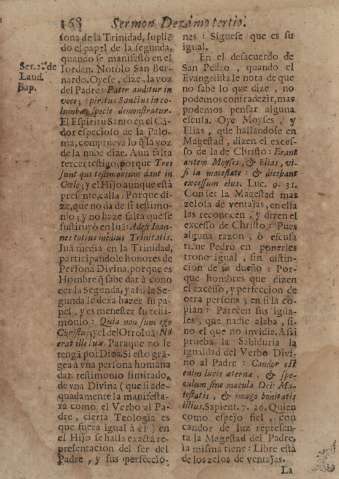 168 Sermon Dezimotertio.
sona de la Trinidad, suplió
do el papel de la segunda,
quando se manifestó en el
Iordan. Notolo San Ber-
Ser. 1.º de
Laud.
Bap.
nardo. Oyese, dize, la voz
del Padre: Pater auditur in
voce; spiritus Sanctus in co-
lumbæ specie demonstratur.
El Espiritu Santo en el Ca-
dor especioso de la Palo-
ma, comprueva lo q̃ la voz
de la nube dize. Aun falta
tercer testigo, porque Tres
sunt qui testimonium dant in
Cœlo; y el Hijo aunque està
presente, calla: Porque di-
ze, que no ha de ir testimo-
nio; y no haze falta que se
substituyò en Iuã: Adest Ioan-
nes totius medius Trinitatis.
en la Trinidad,
participandole honores de
Persona Divina, porque es
Hombre q̃ sabe dar à cono-
cer la Segunda, y assi la Se-
gunda le dexa hazer su pa-
pel, y es menester su testi-
monio: Quia non sum ego
Christus; y el del Otro lo: Nõ
erat ille lux. Paraque no le
tenga por Dios. Si esto grã-
gea à vna persona humana
dar testimonio limitado,
de vna Divina (que si ade-
quadamente la manifesta-
za como el Verbo al Pa-
dre, cierta Teologia es
que fuera igual à èl) en
el Hijo se halla exacta re-
presentacion del ser del
Padre, y sus perfeccio-
nes: Siguese que es su
igual.
En el desacuerdo de
San Pedro, quando el
Evangelista le nota de que
no sabe lo que dize, no
podemos contradezir, mas
podemos pensar alguna
escusa. Oye Moyses, y
Elias, que hallandose en
Magestad, dizen el exces-
so de la de Christo: Erant
autem Moyses, & Elias, vi-
si in maiestate: & dicebant
excessum eius. Luc. 9. 31.
Con ser la Magestad mas
zelosa de ventajas, en ella
las reconocen, y dizen el
excesso de Christo: Pues
alguna razon, ò escusa
tiene Pedro en ponerles
trono igual, sin distin-
cion de su dueño: Por-
que hombres que dizen
el excesso, y perfeccion de
otra persona; en si la co-
pian: Parecen sus igua-
les, que nadie alaba, si-
no el que no invicia. Assi
prueba la Sabiduria la
igualdad del Verbo Divi-
no al Padre: Candor est
enim lucis æternæ, & spe-
culum sine macula Dei Ma-
iestatis, & imago bonitatis
illius. Sapient. 7. 26. Quien
como espejo fiel, con
candor de luz represen-
ta la Magestad del Padre,
la misma tiene: Libre està
de los zelos de ventajas.
La